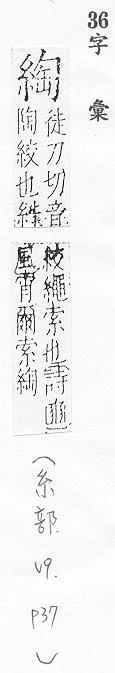 36
字彙
綯
徒刀切音
陶絞也糾
絞繩索也詩豳
風宵爾索綯
(糸部. 19. P37)